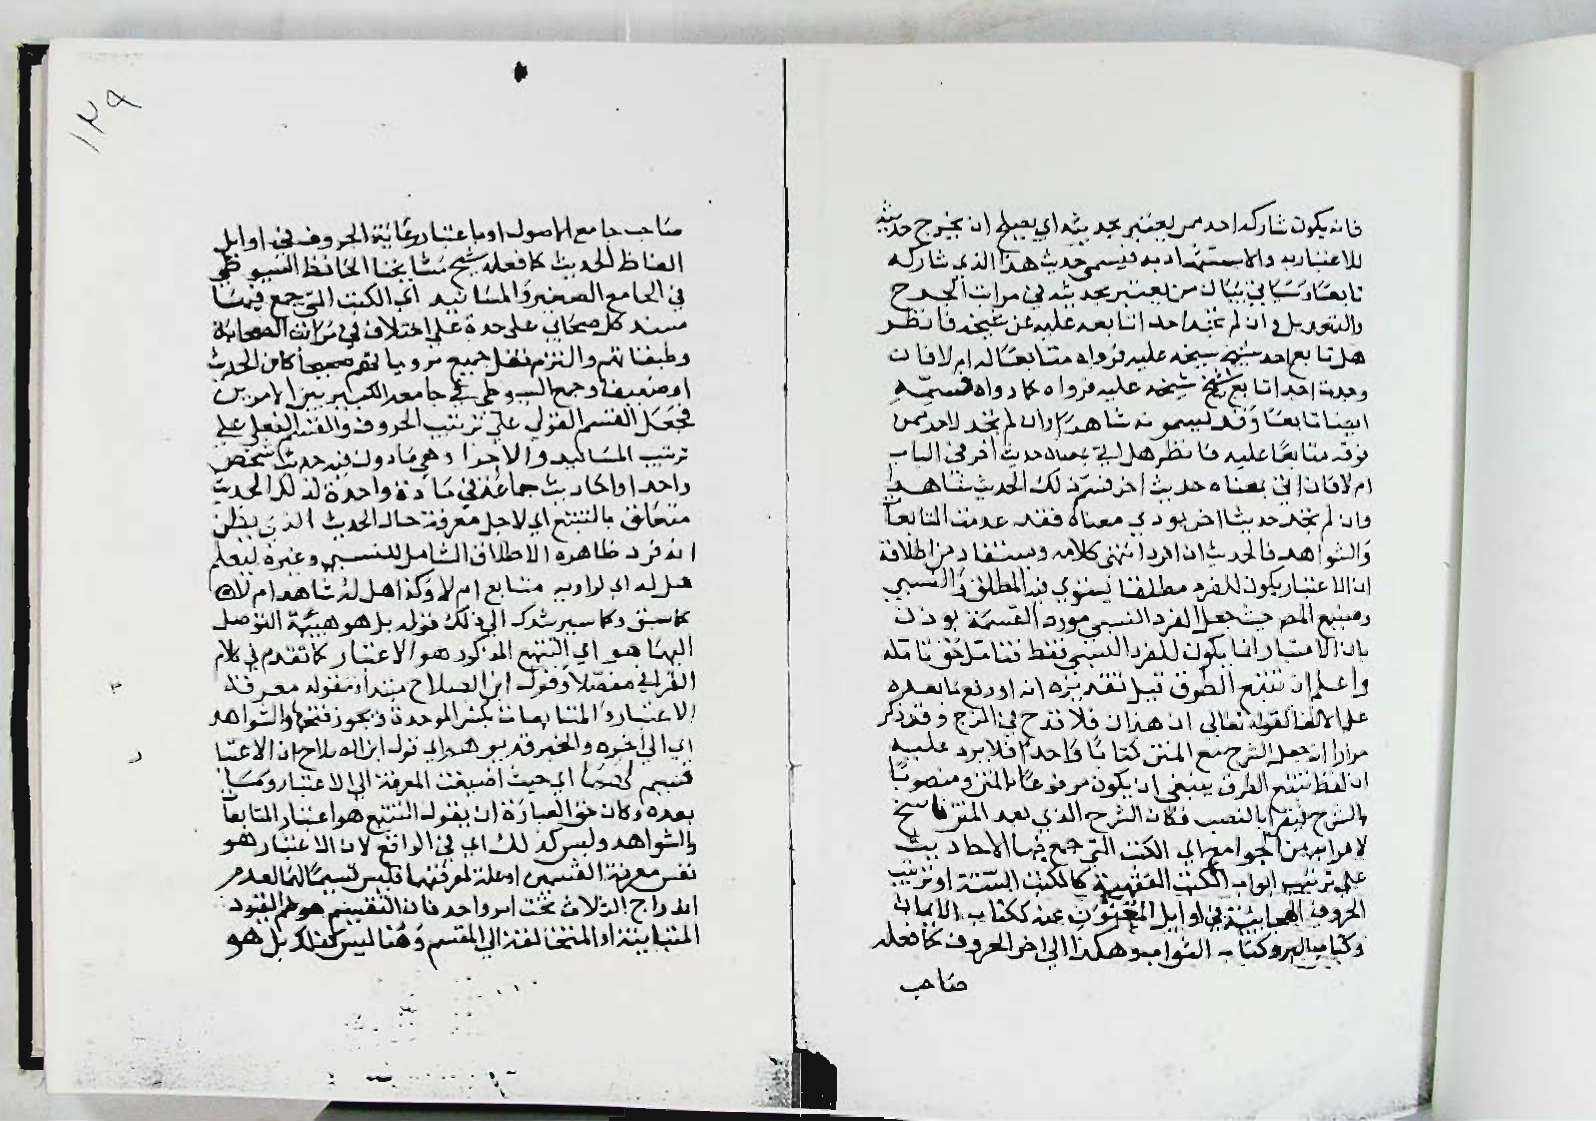 فانه يكون شاركه احد ممن يعتبر بحديثه اي يصلح ان يخرج حديثه
للاعتبار به والاستشهاد به فيسمي حديث هذا الذي شاركه
تابعا وسياتي بيان من يعتبر بحديثه في مراتب الجرح
والتعديل وان لم تجد احدا تابعه عليه عن شيخه فانظر
هل تابع احد شيخه عليه فرواه متابعا له ام لا فان
وجدت احدا تابع شيخ شيخه عليه فرواه كما رواه فسمه
ايضا تابعا وقد يسمونه شاهدا وان لم تجد لاحد ممن
فوقه متابعا عليه فانظر هل اتي بمعناه حديث اخر في الباب
ام لا فان اتي بمعناه حديث اخر فسم ذلك الحديث شاهدا
وان لم تجد حديثا اخر يودي معناه فقد عدمت المتابعات
والشواهد فالحديث اذا فرد انتهي كلامه ويستفاد من اطلاقه
ان الاعتبار يكون للفرد مطلقا يستوي فيه المطلق والنسبي
وصنيع المص حيث جعل الفرد النسبي مورد القسمة يوذن
بان الاعتبار انما يكون للفرد النسبي فقط فتامل حق تامله
واعلم ان تتبع الطرق قيل تقديره انه اورفع ما بعده
علي الالف لقوله تعالي ان هذان فلا قدح في المزج وقد ذكر
مرارا انه جعل الشرح مع المتن كتابا واحدا فلا يرد عليه
ان لفظ تتبع الطرق ينبغي ان يكون مرفوعا بالمتن ومنصوبا
بالشرح فيقرا بالنصب فكان الشرح الذي بعد المتن ناسخ
لاعرابه من الجوامع اي الكتب التي جمع فيها الاحاديث
علي ترتيب ابواب الكتب الفقهية كالكتب الستة او ترتيب
الحروف الهجائية في اوايل المعنون عنه ككتاب الايمان
وكتاب البر وكتاب الثواب وهكذا الي اخر الحروف كما فعله
صاحب
١٢٩
صاحب جامع الاصول او باعتبار رعاية الحروف في اوايل
الفاظ الحديث كما فعله شيخ مشايخنا الحافظ السيوطي
في الجامع الصغير والمسانيد اي الكتب التي جمع فيها
مسند كل صحابي علي حدة علي اختلاف في مراتب الصحابة
وطبقاتهم والتزم نقل جميع مروياتهم صحيحا كان الحديث
او ضعيفا وجمع السيوطي في جامعه الكبير بين الامرين
فجعل القسم القولي علي ترتيب الحروف والقسم الفعلي علي
ترتيب المسانيد والاجزا وهي ما دون فيه حديث شخص
واحد او احاديث جماعة في مادة واحدة لذلك الحديث
متعلق بالتتبع اي لاجل معرفة حال الحديث الذي يظن
انه فرد ظاهره الاطلاق الشامل للنسبي وغيره ليعلم
هل له اي لراويه متابع ام لا وكذا هل له شاهد ام لا
كما سبق وكما سيرشدك الي ذلك قوله بل هو هيئة التوصل
اليهما هو اي التتبع المذكور هو الاعتبار كما تقدم في كلام
العراقي مفصلا وقول ابن الصلاح مبتدا ومقوله معرفة
الاعتبار والمتابعات بكسر الموحدة ويجوز فتحها والشواهد
اي الي اخره والخبر قد يوهم اي قول ابن الصلاح ان الاعتبار
قسيم لهما اي حيث اضيفت المعرفة الي الاعتبار وما
بعده وكان حق العبارة ان يقول التتبع هو اعتبار المتابعات
والشواهد وليس كذلك اي في الواقع لان الاعتبار هو
نفس معرفة القسمين او علة لمعرفتهما فليس قسيما لهما لعدم
اندراج الثلاث تحت امر واحد فان التقسيم هو ضم القيود
المتباينة او المتخالفة الي المقسم وهنا ليس كذلك بل هو